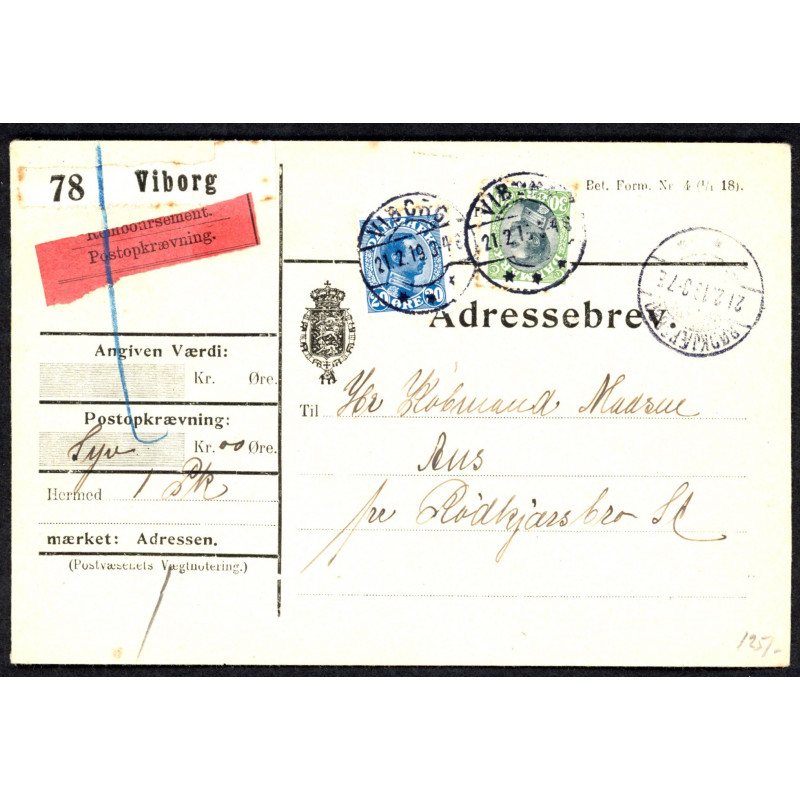 78 Viborg
Remboursement.
Postopkrævning.
Bet. Form. Nr. 4 (1/1 18).
VIBORG
21.2.19
20 ØRE 20
VIBORG
21.2.19
30
21.2.19
Adressebrev.
Angiven Værdi:
Kr. Øre.
Postopkrævning:
Syv Kr. 00 Øre.
Hermed 1 Pk
mærket: Adressen.
(Postvæsenets Vægtnotering.)
Til Hr Købmand Madsen
Aus
pr Rødkjærsbro St
125/-